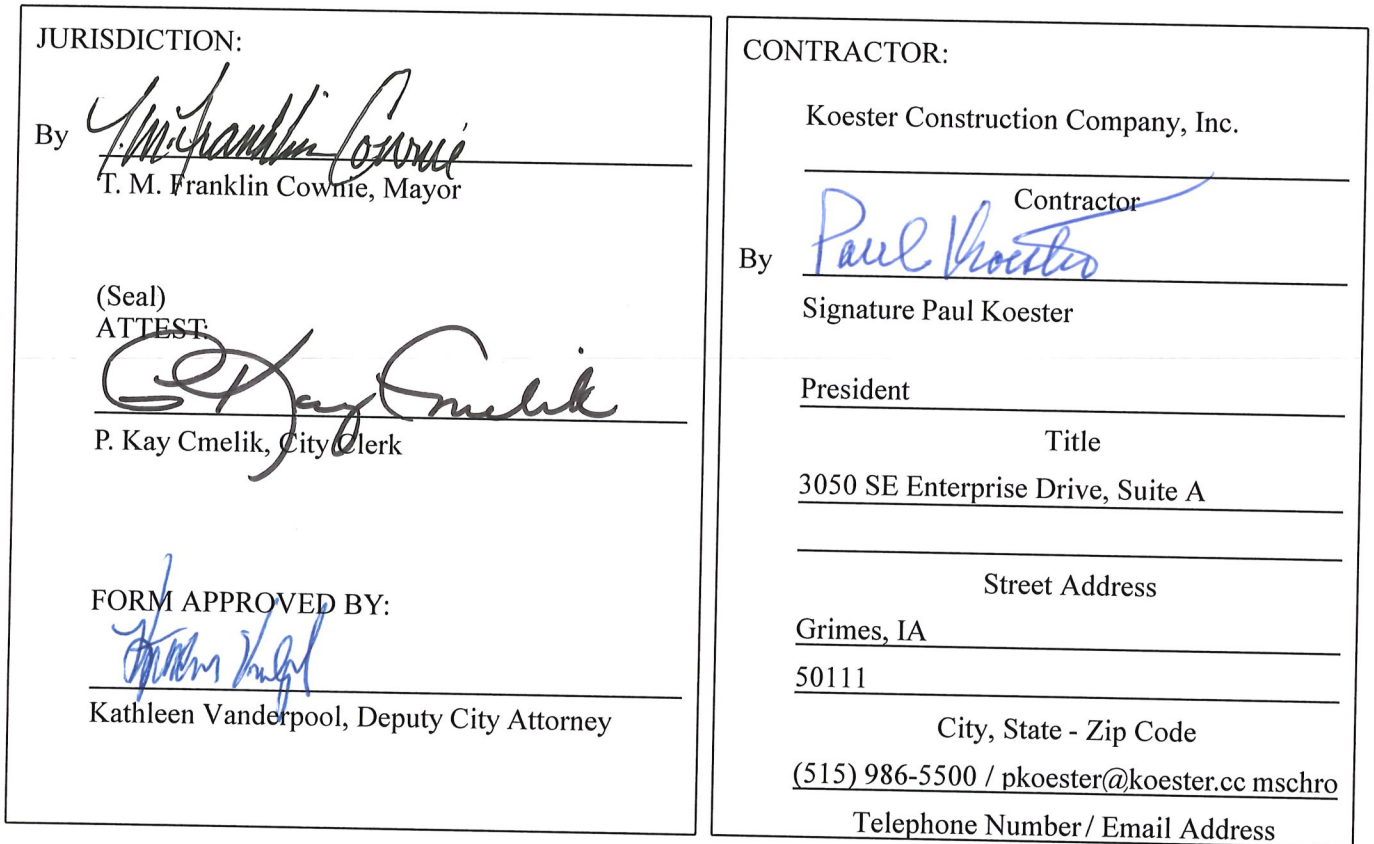 JURISDICTION:
By T. M. Franklin Cownie
T. M. Franklin Cownie, Mayor
(Seal)
ATTEST:
P Kay Cmelik
P. Kay Cmelik, City Clerk
FORM APPROVED BY:
Kathleen Vanderpool, Deputy City Attorney
CONTRACTOR:
Koester Construction Company, Inc.
Contractor
By Paul Koester
Signature Paul Koester
President
Title
3050 SE Enterprise Drive, Suite A
Street Address
Grimes, IA
50111
City, State - Zip Code
(515) 986-5500 / pkoester@koester.cc mschro
Telephone Number / Email Address